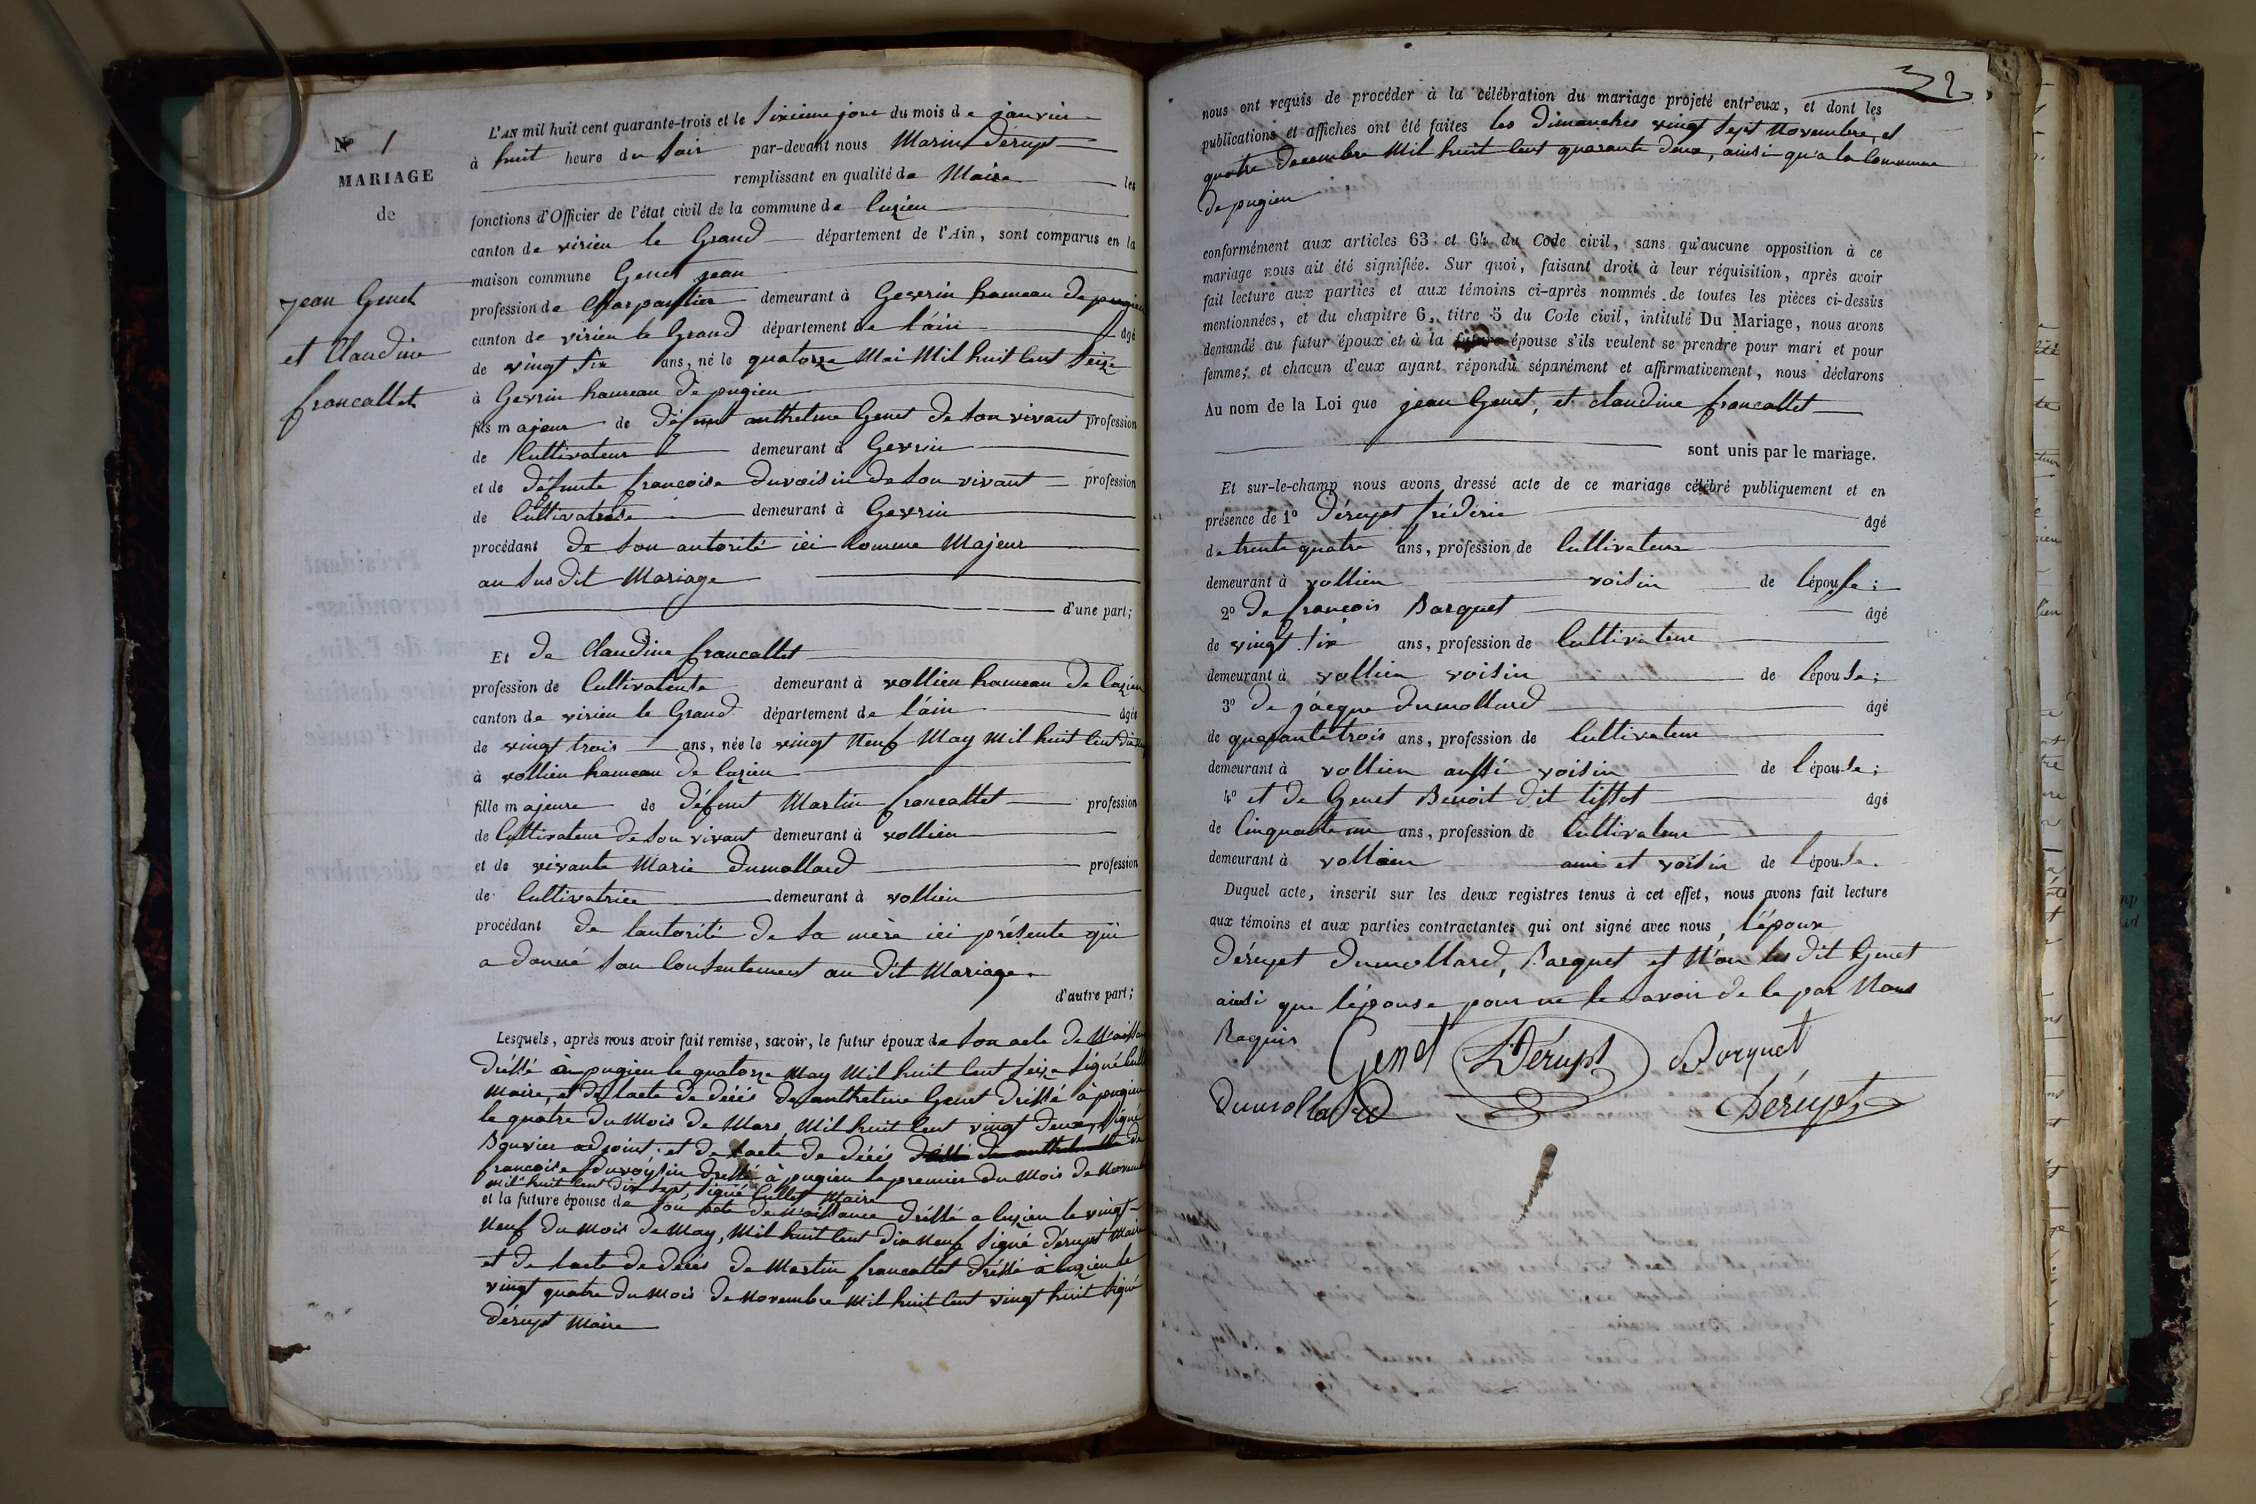 N° 1
MARIAGE
de
jean Genet
et Claudine
francallet
L'AN mil huit cent quarante-trois et le sixieme jour du mois de janvier
à huit heure du soir par-devant nous Marin Dérupt
remplissant en qualité de Maire les
fonctions d'Officier de l'état civil de la commune de Cuzieu
canton de virieu le Grand département de l'Ain, sont comparus en la
maison commune Genet jean
profession de Charpantier demeurant à Gevrin hameau de pugieu
canton de virieu le Grand département de l'ain âgé
de vingt six ans, né le quatorze Mai Mil huit Cent Seize
à Gevrin hameau de pugieu
fils majeur de défunt anthelme Genet de son vivant profession
de Cultivateur demeurant à Gevrin
et de défunte francoise duvoisin de son vivant profession
de Cultivatrise demeurant à Gevrin
procédant de son autorité ici Comme Majeur
au susdit Mariage
d'une part;
Et de Claudine francallet
profession de Cultivatente demeurant à vollien hameau de Cuzieu
canton de virieu le Grand département de l'ain âgée
de vingt trois ans, née le vingt Neuf May Mil huit Cent dix neuf
à vollien hameau de Cuzieu
fille majeure de défunt Martin francallet profession
de Cultivateur de son vivant demeurant à vollien
et de vivante Marie dumollard profession
de Cultivatrice demeurant à vollien
procédant de lautorité de sa mère ici présente qui
a donné son Consentement au dit Mariage.
d'autre part;
Lesquels, après nous avoir fait remise, savoir, le futur époux de son acte de Naissance
dréssé à pugieu le quatorze May Mil huit Cent Seize Signé Cullet
Maire, et de lacte de décès de anthelme Genet dréssé à pugieu
le quatre du Mois de Mars, Mil huit Cent vingt deux, Signé
Bouvier adjoint; et de lacte de décès dréssé de anthelme de
francoise duvoysin dréssé à pugieu le premier du Mois de Novembre
mil huit Cent dix sept, signé Cullet Maire
et la future épouse de son acte de Naissance dréssé a Cuzieu le vingt-
Neuf du Mois de May, Mil huit Cent dix Neuf Signé dérupt Maire
et de lacte de décès de Martin francallet dréssé à Cuzieu le
vingt quatre du Mois de Novembre Mil huit Cent vingt huit signé
dérupt Maire
32
nous ont requis de procéder à la célébration du mariage projeté entr'eux, et dont les
publications et affiches ont été faites les dimanches vingt sept Novembre, et
quatre decembre Mil huit Cent quarante deux, ainsi qu'a la Commune
de pugieu
conformément aux articles 63 et 64 du Code civil, sans qu'aucune opposition à ce
mariage nous ait été signifiée. Sur quoi, faisant droit à leur réquisition, après avoir
fait lecture aux parties et aux témoins ci-après nommés de toutes les pièces ci-dessus
mentionnées, et du chapitre 6, titre 5 du Code civil, intitulé Du Mariage, nous avons
demandé au futur époux et à la future épouse s'ils veulent se prendre pour mari et pour
femme; et chacun d'eux ayant répondu séparément et affirmativement, nous déclarons
Au nom de la Loi que jean Genet, et claudine francallet
sont unis par le mariage.
Et sur-le-champ nous avons dressé acte de ce mariage célébré publiquement et en
présence de 1° Dérupt fréderic âgé
de trente quatre ans, profession de Cultivateur
demeurant à vollien voisin de l'épouse;
2° de françois Barquet âgé
de vingt six ans, profession de Cultivateur
demeurant à vollien voisin de l'épouse;
3° de jâcque dumollard âgé
de quarante trois ans, profession de Cultivateur
demeurant à vollien aussi voisin de l'épouse;
4° et de Genet Benoit dit tissot âgé
de Cinquante un ans, profession de Cultivateur
demeurant à vollien ami et voisin de l'épouse.
Duquel acte, inscrit sur les deux registres tenus à cet effet, nous avons fait lecture
aux témoins et aux parties contractantes qui ont signé avec nous, l'époux
dérupt dumollard, Barquet et Non les dit Genet
ainsi que l'épouse pour ne le savoir de le par Nous
Requis
Genet Dérupt Borquet
dumollard Dérupt